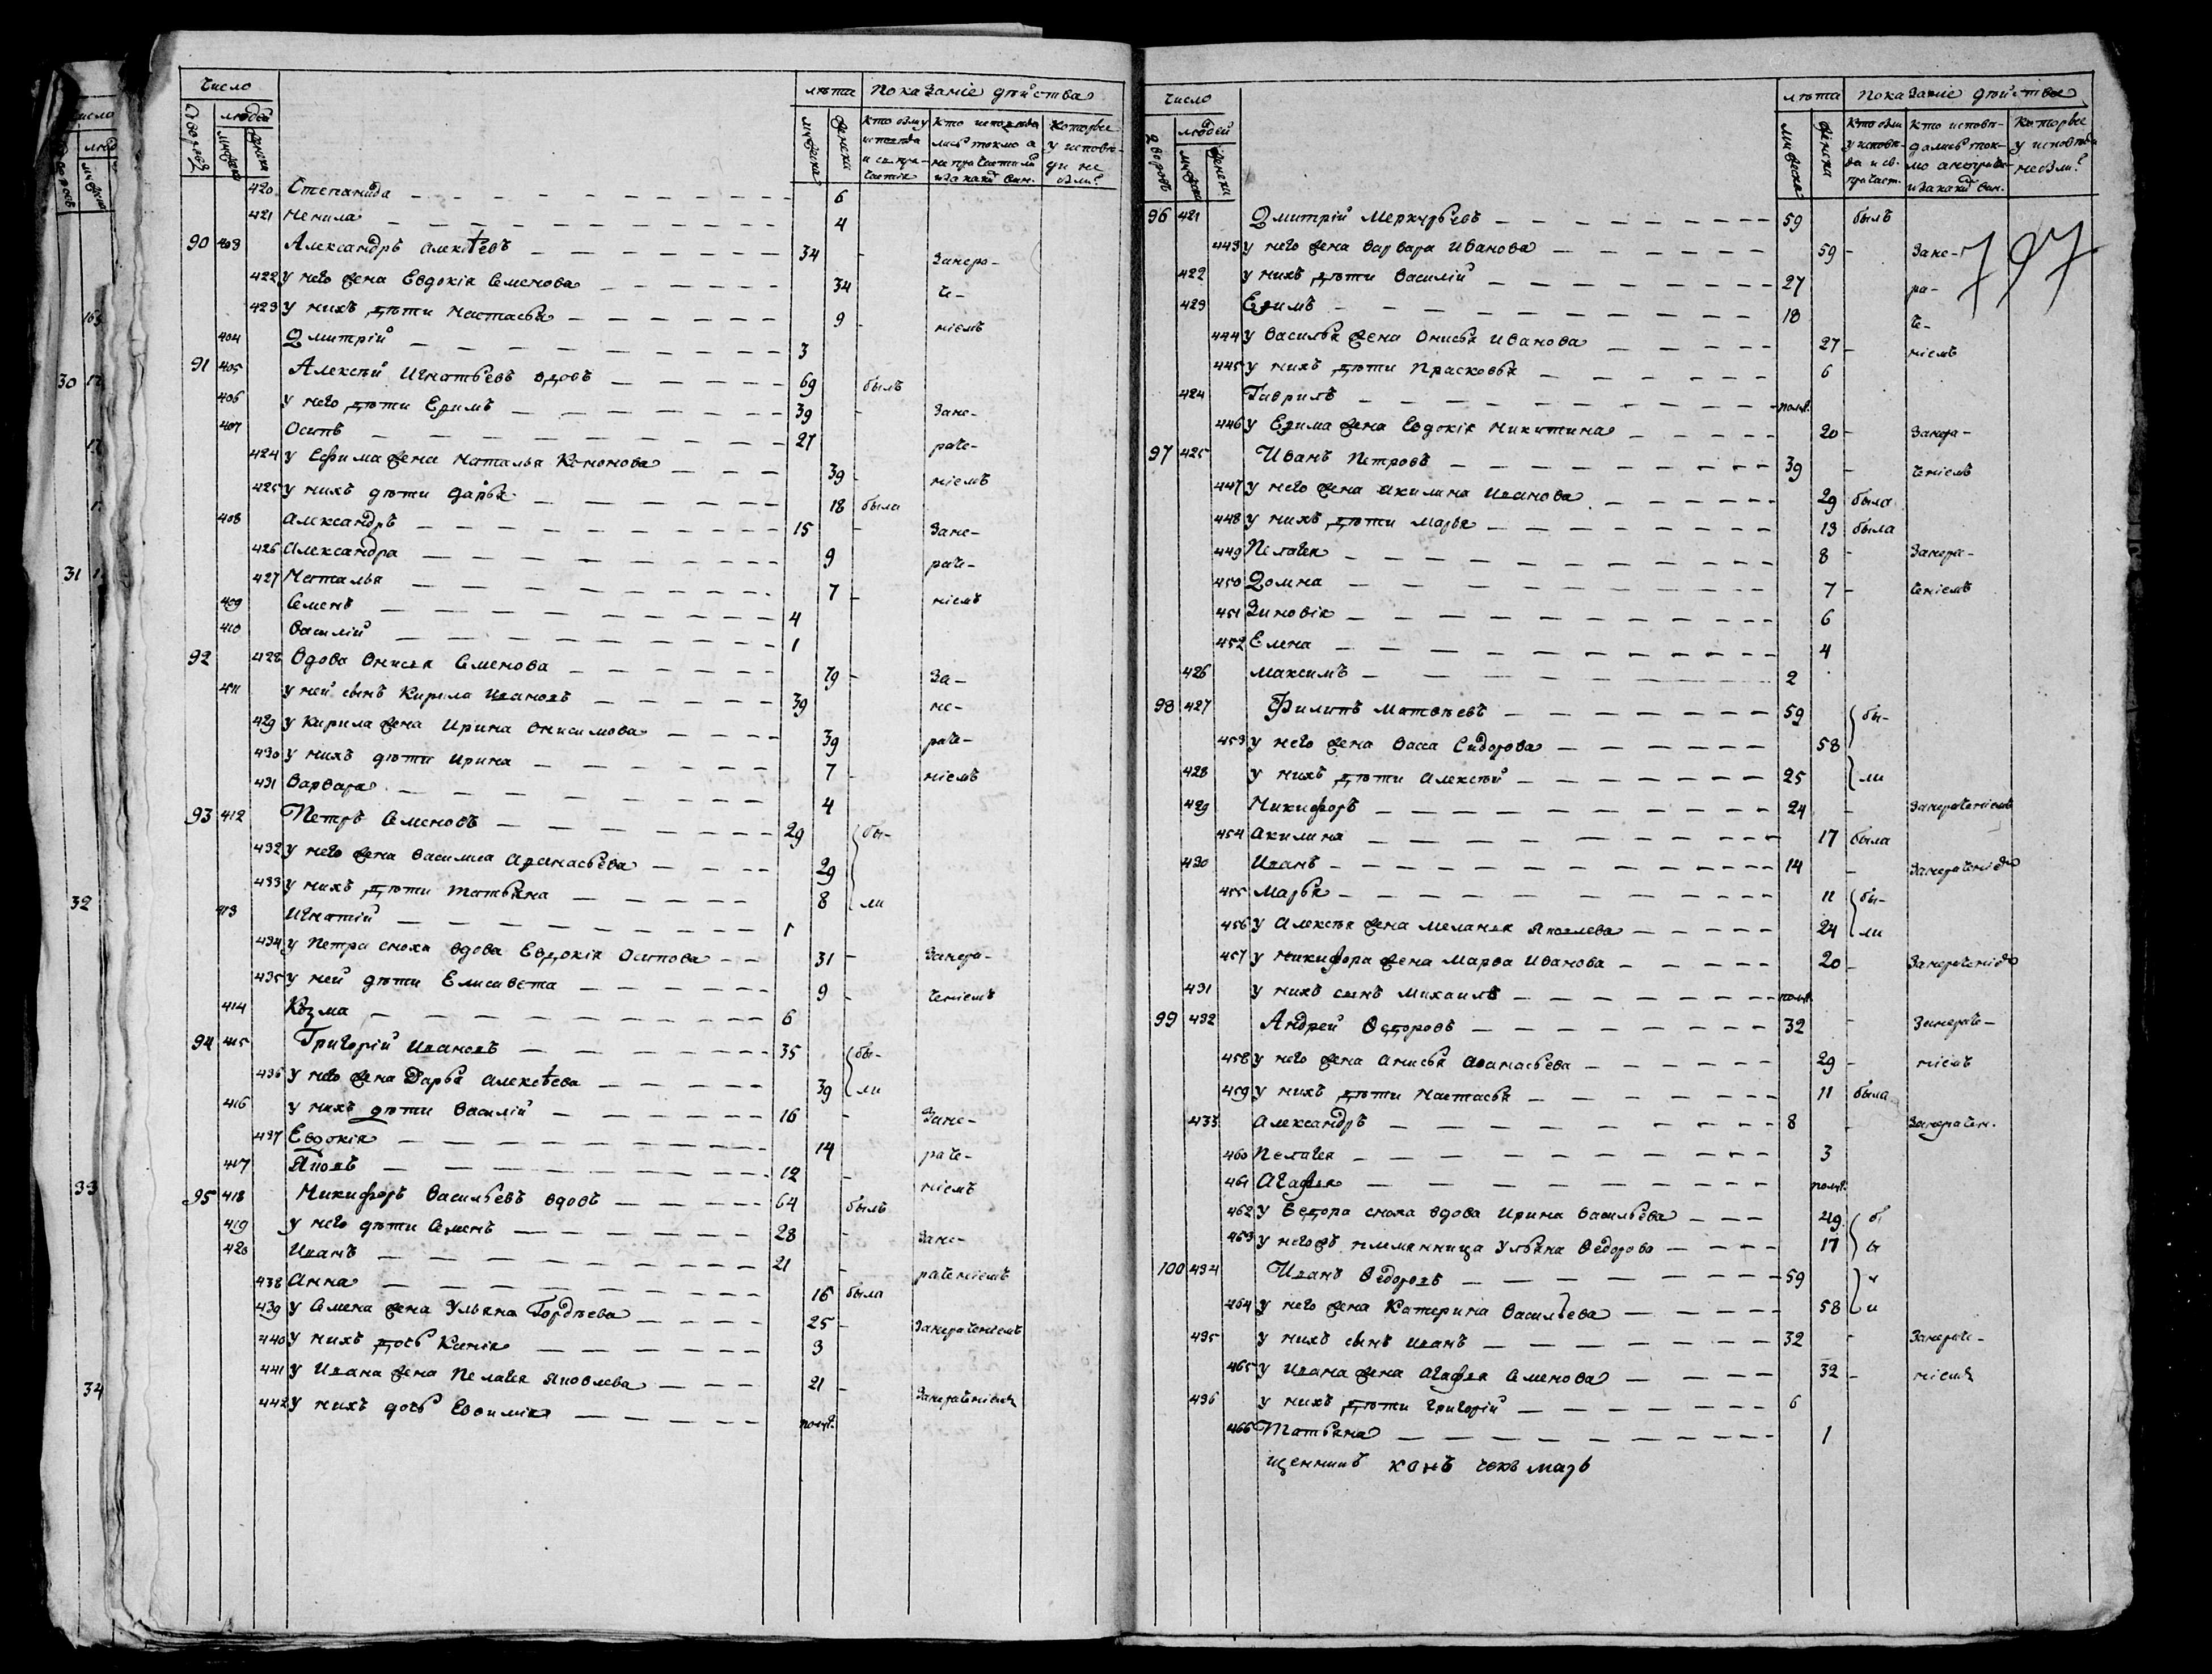 Число
людей
лѣта
Показаніе дѣйства
дворовъ
мужеска
женска
мужеска
женска
Кто были у исповѣди и св. причастія
Кто исповѣдались токмо а не причастились и за какой вин.
Которые у исповѣди не были?
420 Степанида 6
421 Ненила 4
90 403 Александръ Алексѣевъ 34 - Занера-
422 у него жена Евдокія Семенова 34 че-
423 у нихъ дѣти Настасья 9 - ніемъ
404 Дмитрій 3
91 405 Алексѣй Игнатьевъ вдовъ 69 былъ
406 у него дѣти Ефимъ 39 - Зане-
407 Осипъ 27 раче-
424 у Ефима жена Наталья Кононова 39 - ніемъ
425 у нихъ дѣти Дарья 18 была
408 Александръ 15 - Зане-
426 Александра 9 раче-
427 Наталья 7 - ніемъ
409 Семенъ 4
410 Василій 1
92 428 Вдова Онисья Семенова 79 - За-
411 у ней сынъ Кирила Ивановъ 39 не-
429 у Кирила жена Ирина Онисимова 39 раче-
430 у нихъ дѣти Ирина 7 - ніемъ
431 Варвара 4
93 412 Петръ Семеновъ 29 бы-
432 у него жена Василиса Афанасьева 29
433 у нихъ дѣти Татьяна 8 ли
413 Игнатій 1
434 у Петра сноха вдова Евдокія Осипова 31 - Занера-
435 у ней дѣти Елисавета 9 - ченіемъ
414 Козма 6
94 415 Григорій Ивановъ 35 бы-
436 у него жена Дарья Алексѣева 39 ли
416 у нихъ дѣти Василій 16 - Зане-
437 Евдокія 14 раче-
417 Яковъ 12 - ніемъ
95 418 Никифоръ Васильевъ вдовъ 64 былъ
419 у него дѣти Семенъ 28 - Зане-
420 Иванъ 21 - раченіемъ
438 Анна 16 была
439 у Семена жена Ульяна Гордѣева 25 - Занераченіемъ
440 у нихъ дочь Ксенія 3
441 у Ивана жена Пелагея Яковлева 21 - Занераченіемъ
442 у нихъ дочь Евфимія полг.
Число
людей
лѣта
Показаніе дѣйства
дворовъ
мужеска
женска
мужеска
женска
Кто были у исповѣда и св. причаст.
Кто исповѣдались токмо а не причас- и за какой вин.
Которые у исповѣди не были?
797
96 421 Дмитрій Меркурьевъ 59 былъ
443 у него жена Варвара Иванова 59 - Зане-
422 у нихъ дѣти Василій 27 ра-
423 Ефимъ 18 че-
444 у Василья жена Онисья Иванова 27 - ніемъ
445 у нихъ дѣти Прасковья 6
424 Гаврилъ полг.
446 у Ефима жена Евдокія Никитина 20 - Занера-
97 425 Иванъ Петровъ 39 - ченіемъ
447 у него жена Акилина Иванова 29 была
448 у нихъ дѣти Марья 13 была
449 Пелагея 8 - Занера-
450 Домна 7 - ченіемъ
451 Зиновія 6
452 Елена 4
426 Максимъ 2
98 427 Филипъ Матвѣевъ 59 бы-
453 у него жена Васса Сидорова 58
428 у нихъ дѣти Алексѣй 25 ли
429 Никифоръ 24 - Занераченіемъ
454 Акилина 17 была
430 Иванъ 14 - Занераченіемъ
455 Марья 11 бы-
456 у Алексѣя жена Меланья Яковлева 24 ли
457 у Никифора жена Марфа Иванова 20 - Занераченіемъ
431 у нихъ сынъ Михаилъ полг.
99 432 Андрей Ѳедоровъ 32 - Занераче-
458 у него жена Анисья Аѳанасьева 29 - ніемъ
459 у нихъ дѣти Настасья 11 была
433 Александръ 8 - Занерачен.
460 Пелагея 3
461 Агафья полг.
462 у Ѳедора сноха вдова Ирина Васильева 49 б
463 у негожъ племянница Ульяна Ѳедорова 17 ы
100 434 Иванъ Ѳедоровъ 59 л
464 у него жена Катерина Васильева 58 и
435 у нихъ сынъ Иванъ 32 - Занераче-
465 у Ивана жена Агафья Семенова 32 - ніемъ
436 у нихъ дѣти Григорій 6
466 Татьяна 1
щенникъ